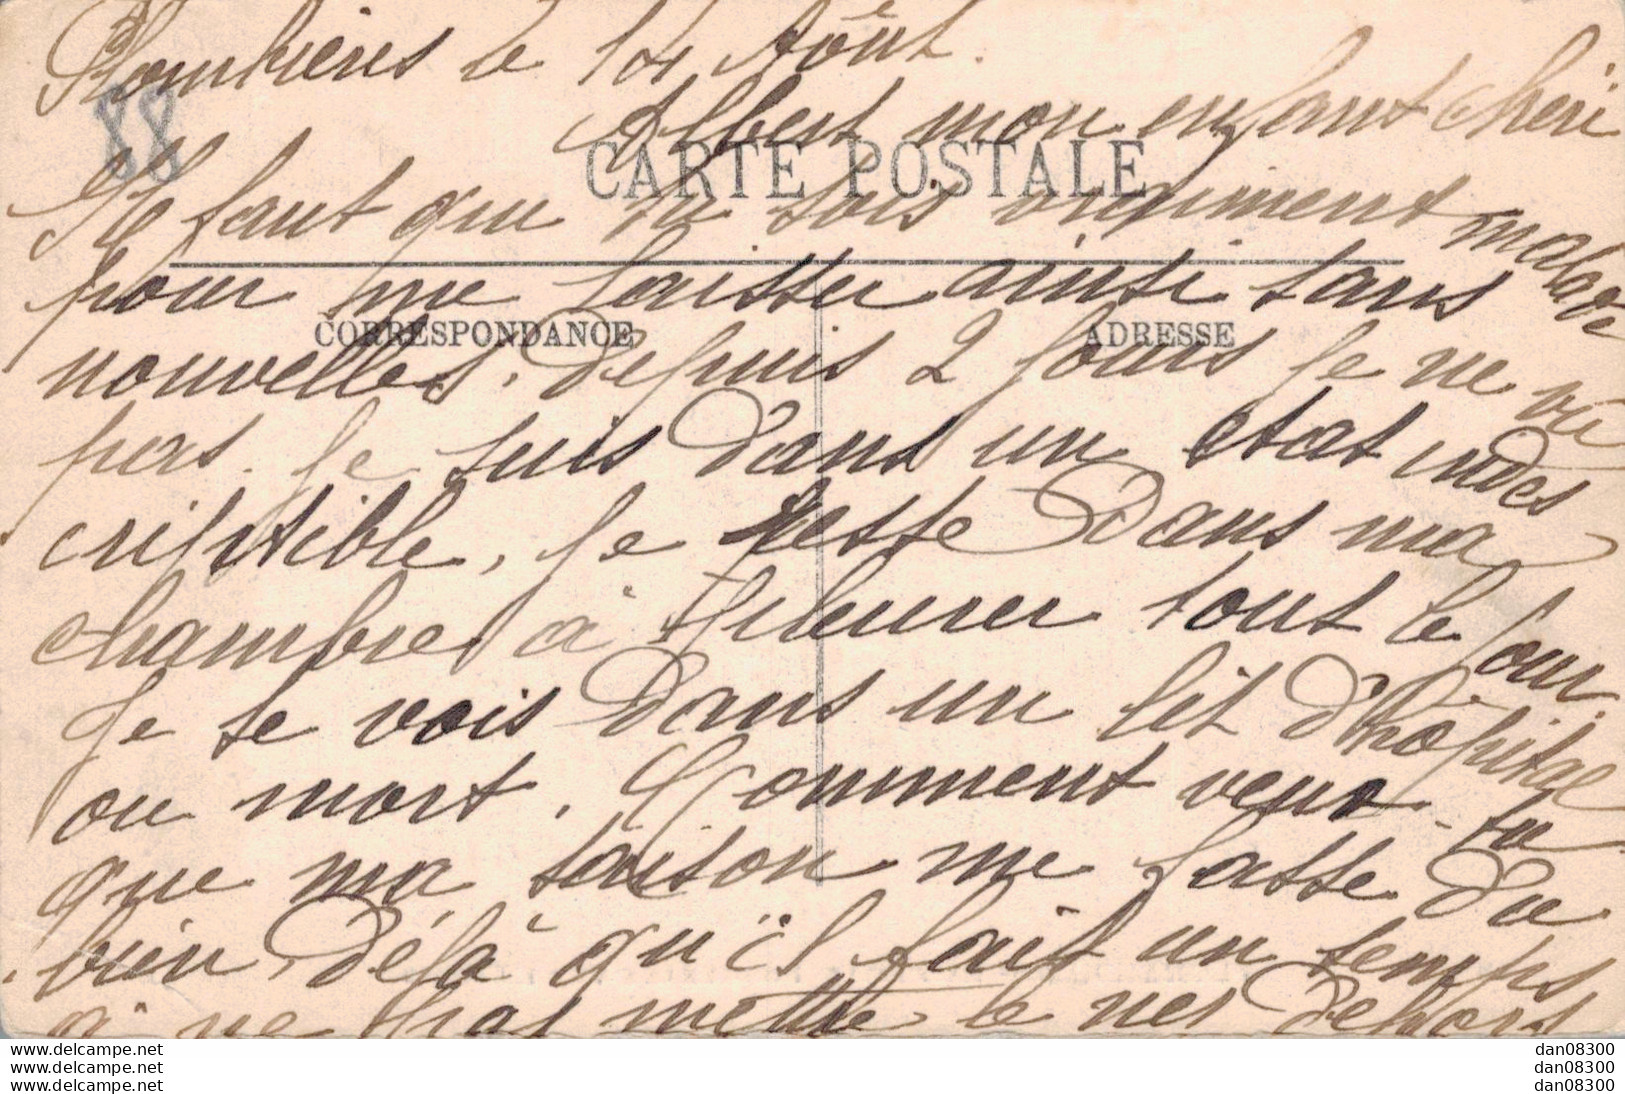 Plombières le 14 Août.
88
Albert mon enfant chéri
CARTE POSTALE
Il faut que tu sois vraiment malade
pour me laisser ainsi sans
CORRESPONDANCE
ADRESSE
nouvelles, depuis 2 jours je ne vis
pas. je suis dans un état indes-
criptible, je reste dans ma
chambre à pleurer tout le jour.
Je te vois dans un lit d'hôpital
ou mort. Comment veux-tu
que ma saison me fasse du
bien, déjà qu'il fait un temps
à ne pas mettre le nez dehors
www.delcampe.net
www.delcampe.net
www.delcampe.net
dan08300
dan08300
dan08300